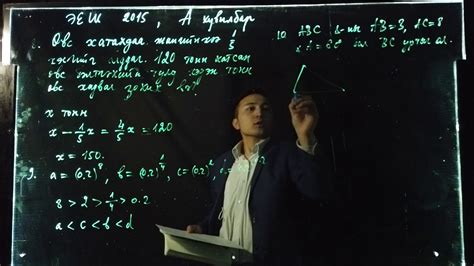 ЭЕШ 2015, А хувилбар
Өвс хатаахдаа жингийнхээ 1/5
хэсгийг алддаг. 120 тонн хатсан
өвс бэлтгэхийн тулд хэдэн тонн
өвс хадвал зохих вэ?
x тонн
x - 1/5 x = 4/5 x = 120
x = 150.
9. a = (0,2)^8, b = (0,2)^{1/4}, c = (0,2)^2,
8 > 2 > 1/4 > 0.2
a < c < b < d
10 ABC Δ-ийн AB=3, AC=8
бол BC урт ол.